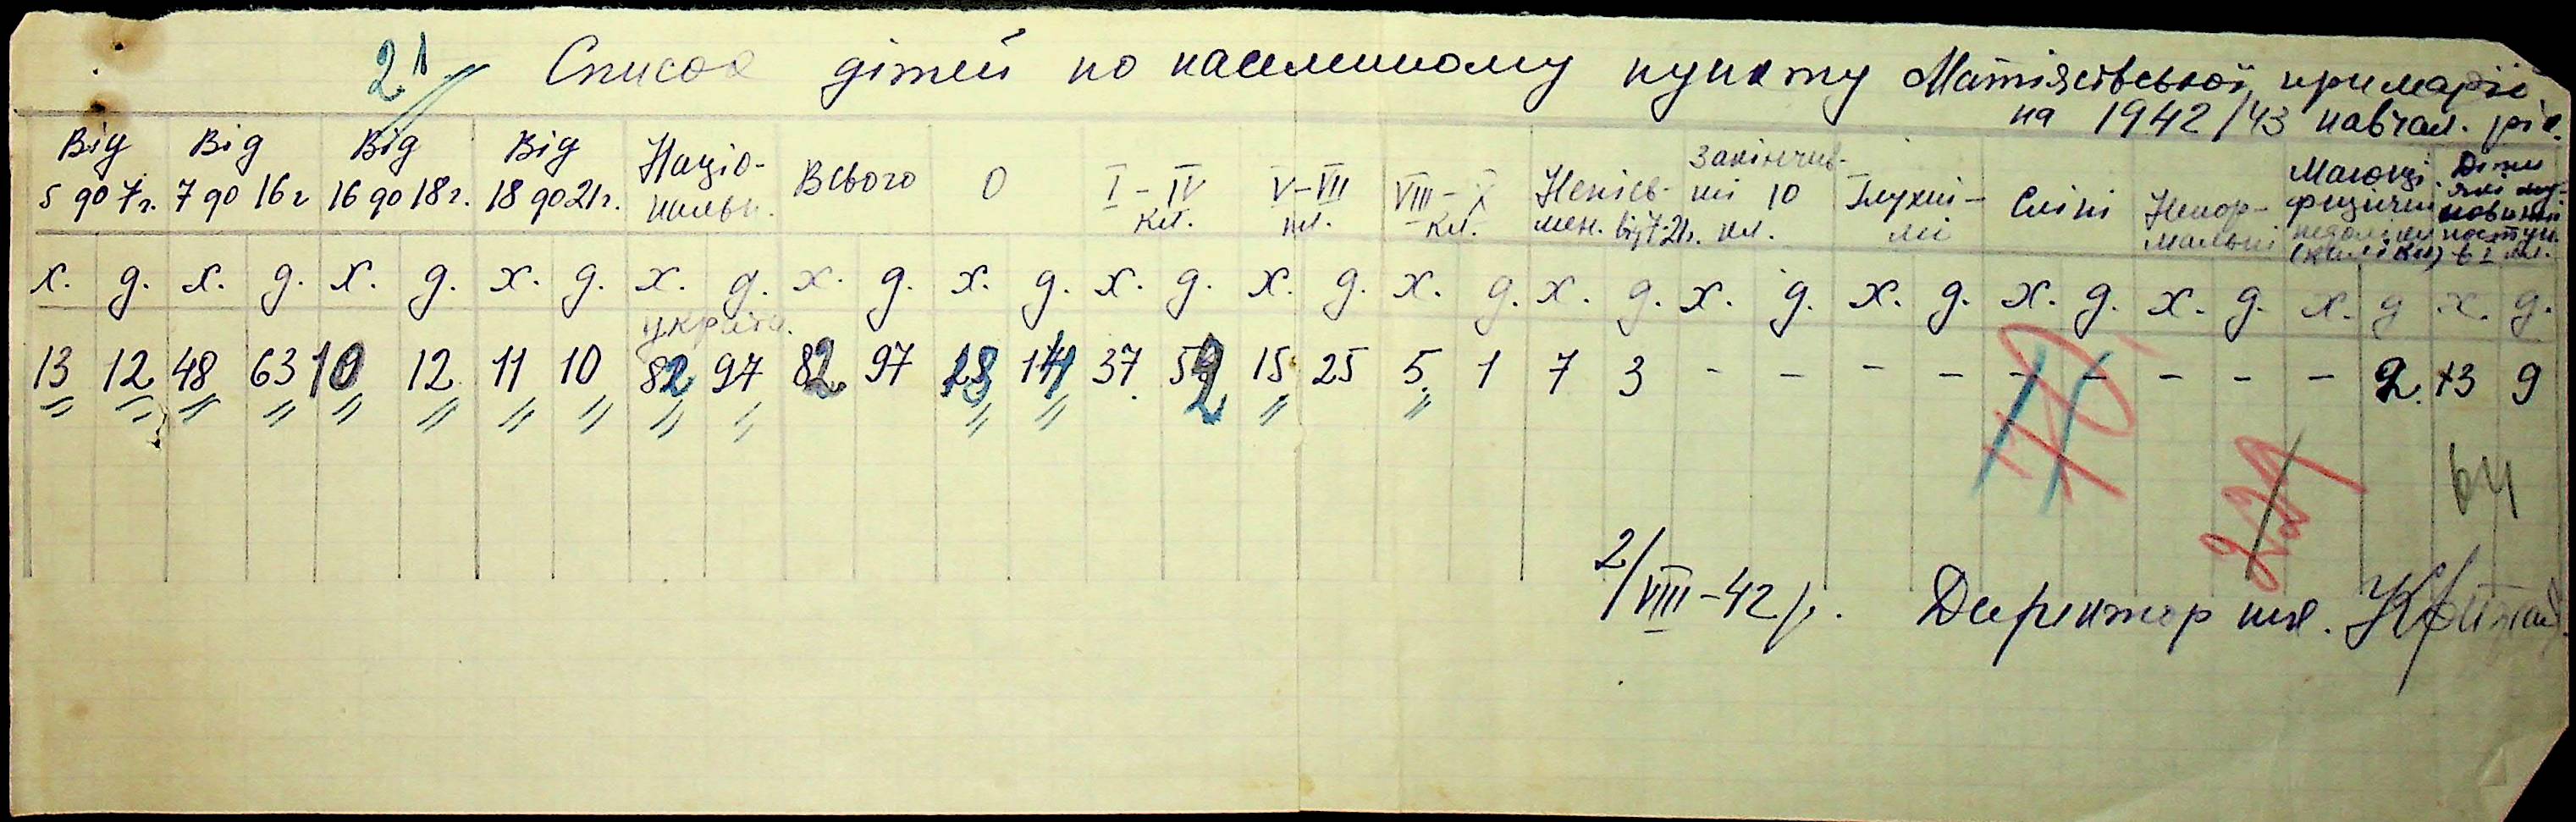 21
Список дітей по населенному пункту Матіясівської примарії
на 1942/43 навчал. рік.
Від 5 до 7 г. Від 7 до 16 г Від 16 до 18 г. Від 18 до 21 г. Націо-нальн. Всього 0 I – IV кл. V – VII кл. VIII – X кл. Неписьмен. від 7-21 г. Закінчив-ші 10 кл. Глухні-мі Сліпі Ненор-мальні Маючі фізичні недоліки (каліки) Діти які повинні поступ. в I кл.
х. д. х. д. х. д. х. д. х. д. х. д. х. д. х. д. х. д. х. д. х. д. х. д. х. д. х. д. х. д. х. д х. д.
україн.
13 12 48 63 10 12 11 10 82 97 82 97 14 37 52 15 25 5 1 7 3 - - - - - - - - - 2. 13 9
64
2/VIII – 42 р. Директор шк.